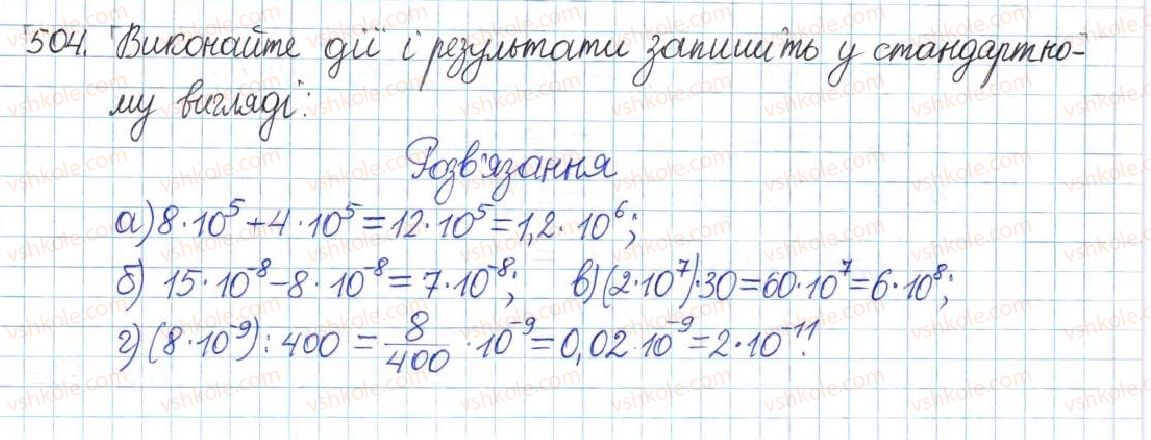 504. Виконайте дії і результати запишіть у стандартно-
му вигляді:
Розв'язання
а) 8·10⁵+4·10⁵=12·10⁵=1,2·10⁶;
б) 15·10⁻⁸-8·10⁻⁸=7·10⁻⁸; в) (2·10⁷)·30=60·10⁷=6·10⁸;
г) (8·10⁻⁹):400=8/400·10⁻⁹=0,02·10⁻⁹=2·10⁻¹¹.